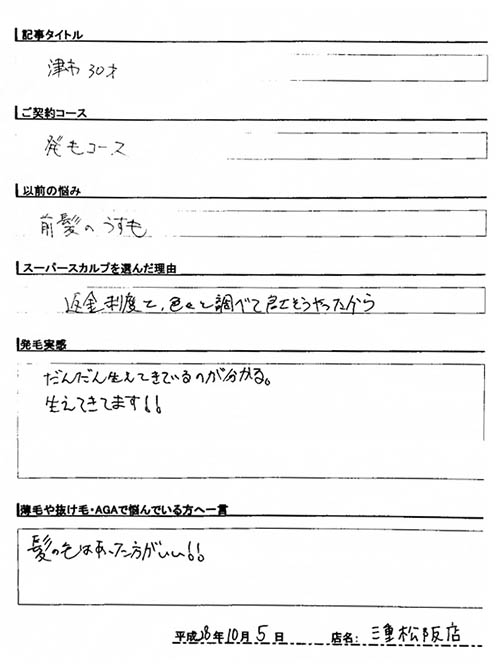 記事タイトル
津市 30才
ご契約コース
発毛コース
以前の悩み
前髪の うすも
スーパースカルプを選んだ理由
返金制度と、色々と調べて良さそうやったから
発毛実感
だんだん生えてきているのが分かる。
生えてきてます!!
薄毛や抜け毛・AGAで悩んでいる方へ一言
髪の毛はあった方がいい!!
平成28年10月5日 店名: 三重松阪店